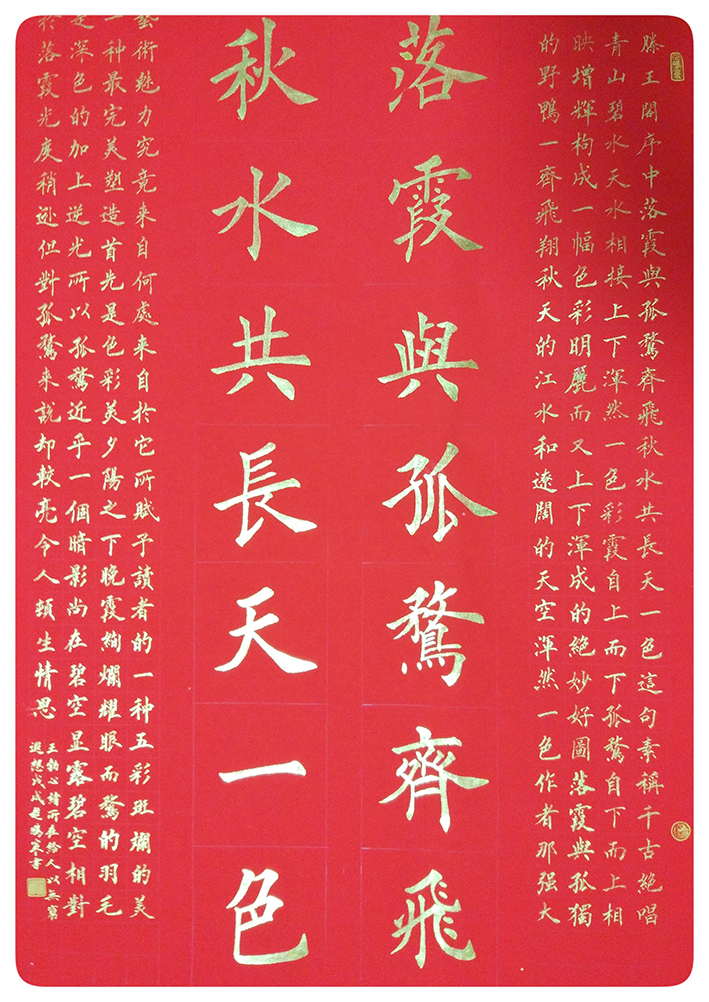 滕王閣序中落霞與孤鶩齊飛秋水共長天一色這句素稱千古絶唱
青山碧水天水相接上下渾然一色彩霞自上而下孤鶩自下而上相
映增輝构成一幅色彩明麗而又上下渾成的絶妙好圖落霞與孤獨
的野鴨一齊飛翔秋天的江水和遠闊的天空渾然一色作者那强大
落霞與孤鶩齊飛
秋水共長天一色
藝術魅力究竟来自何處来自於它所賦予讀者的一种五彩斑斕的美
一种最完美塑造首先是色彩美夕陽之下晚霞絢爛耀眼而鶩的羽毛
是深色的加上逆光所以孤鶩近乎一個暗影尚在碧空显露碧空相對
於落霞光度稍逊但對孤鶩来説却較亮令人頓生情思
王勃心緒所在給人以無窮
遐想戊戌趙鴻
書